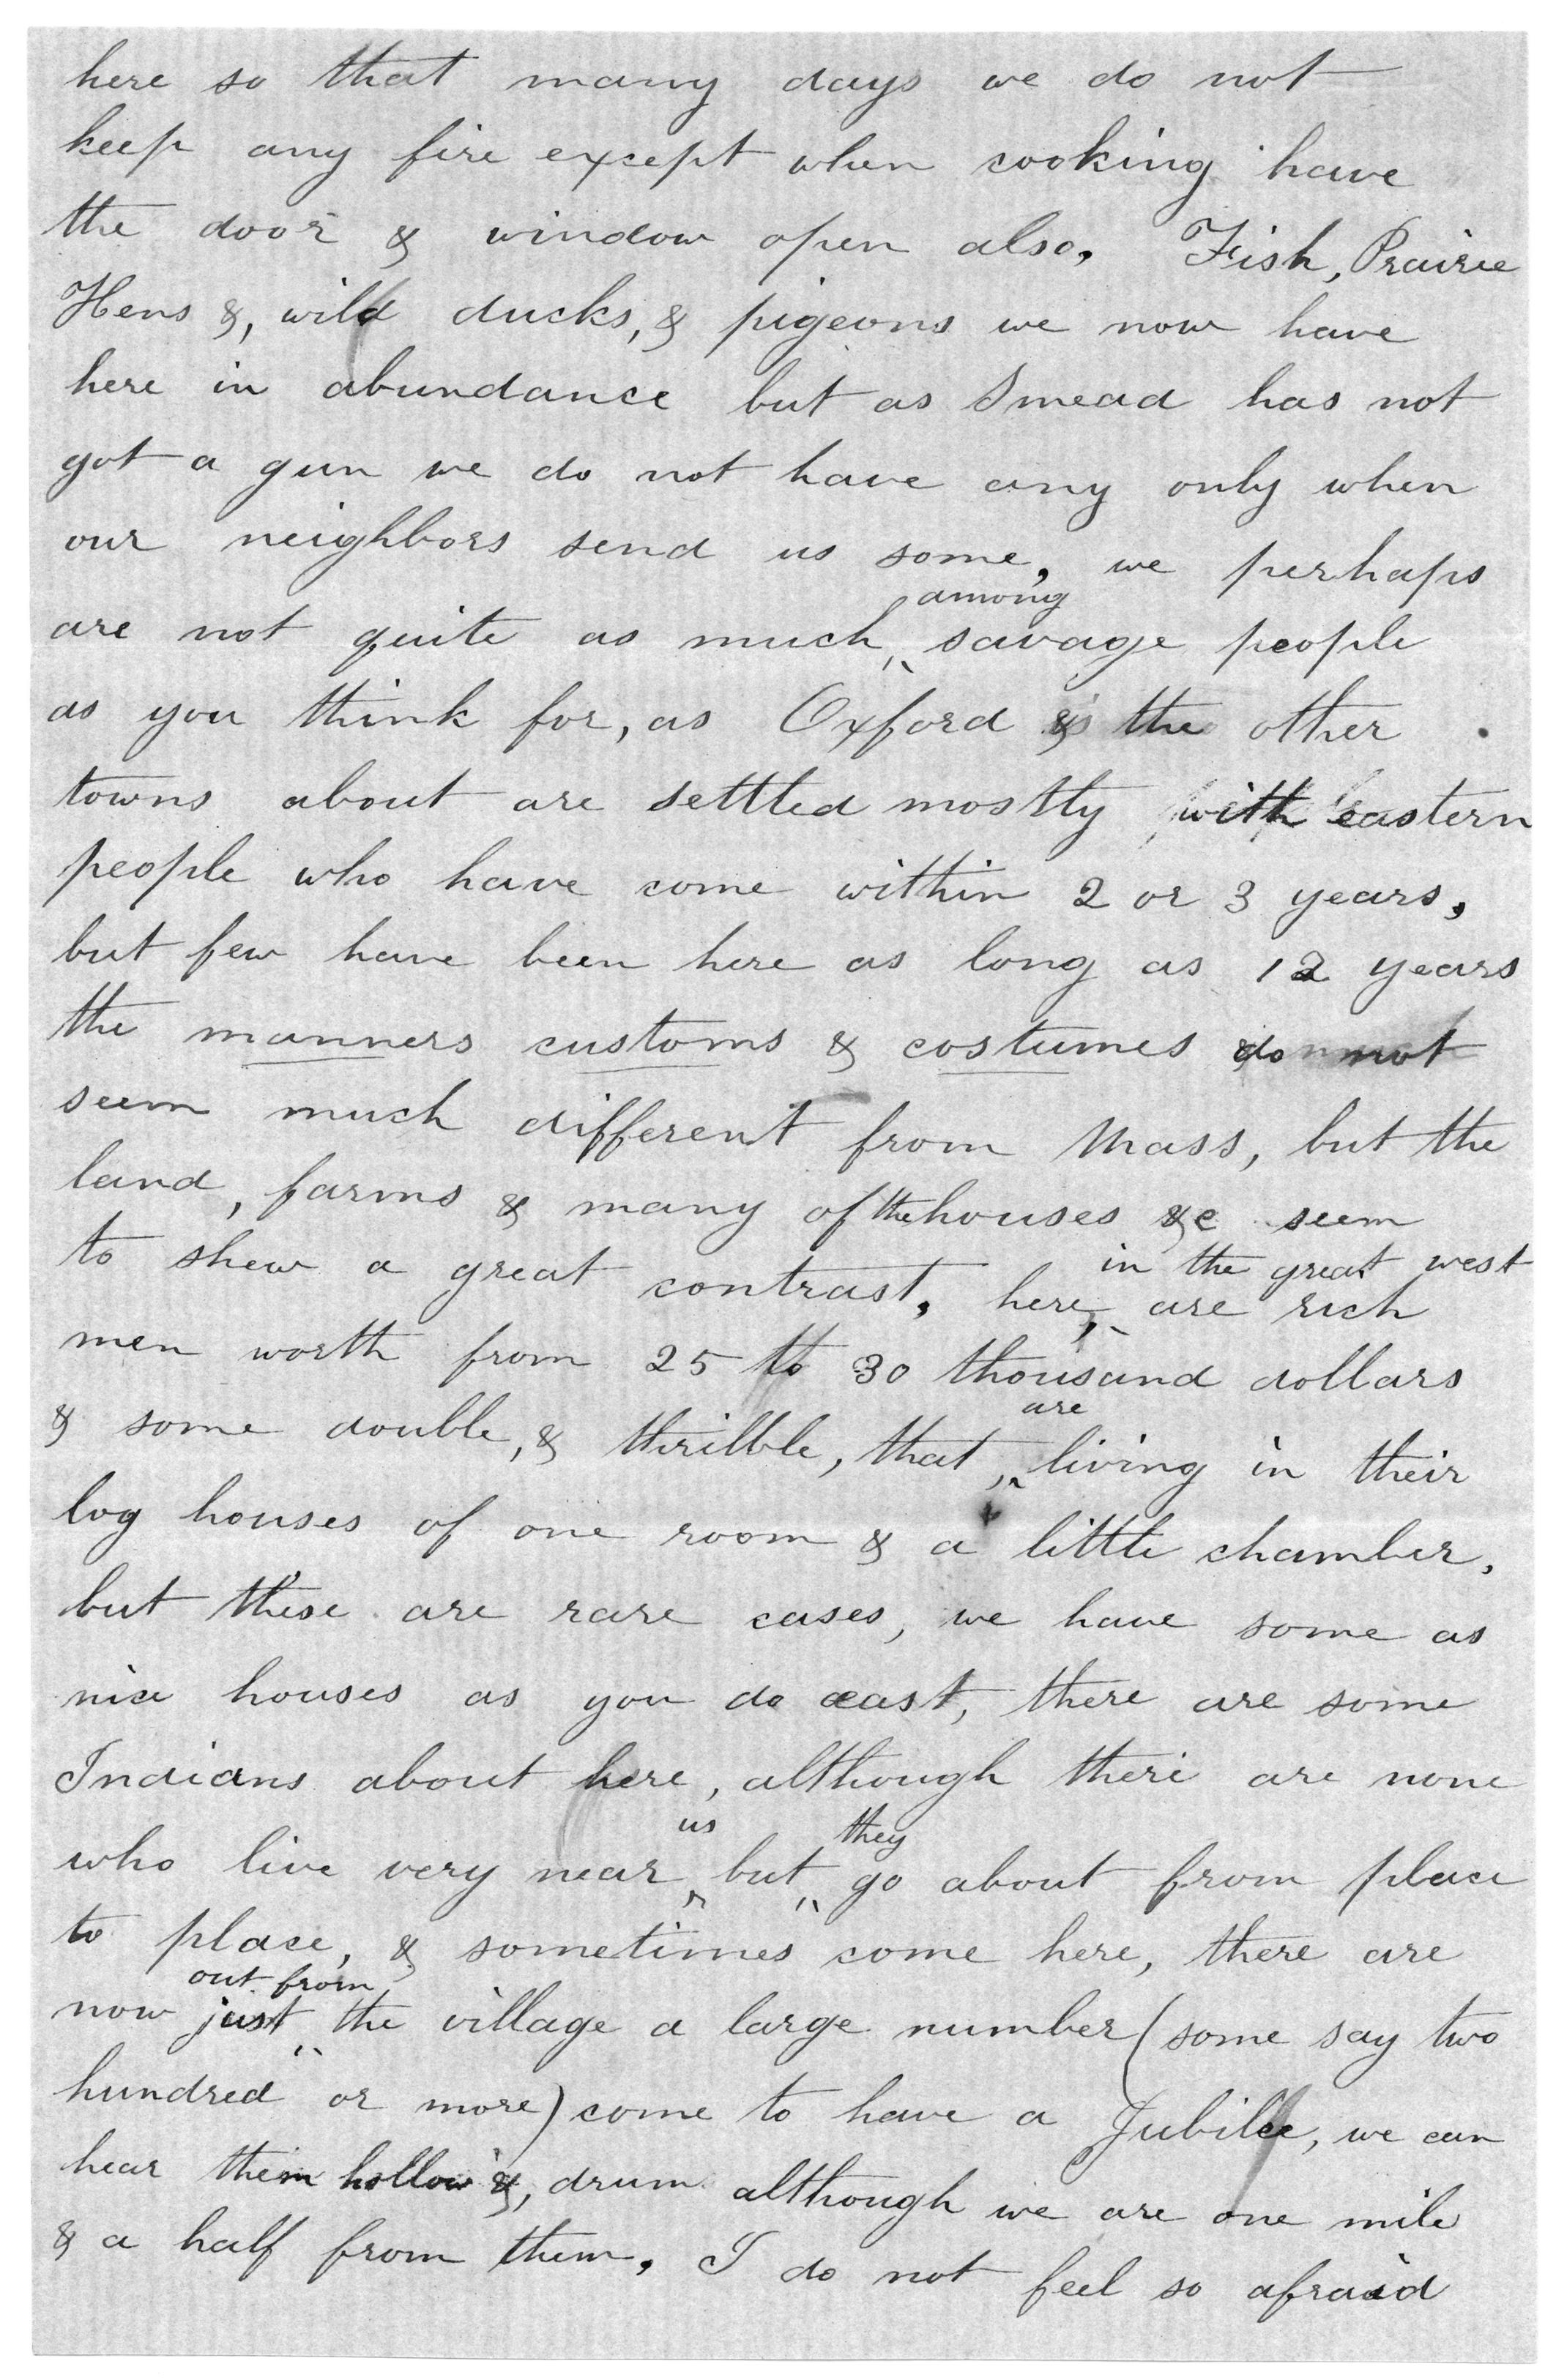 here so that many days we do not
keep any fire except when cooking have
the door & window open also. Fish, Prairie
Hens &, wild ducks, & pigeons we now have
here in abundance but as Smead has not
got a gun we do not have any only when
our neighbors send us some, we perhaps
among
are not quite as much savage people
as you think for, as Oxford & the other
towns about are settled mostly with eastern
people who have come within 2 or 3 years,
but few have been here as long as 12 years
the manners customs & costumes do not
seem much different from Mass, but the
land, farms & many of the houses &c seem
in the great west
to shew a great contrast, here, are rich
men worth from 25 to 30 thousand dollars
are
& some double, & thribble, that living in their
log houses of one room & a little chamber,
but these are rare cases, we have some as
nice houses as you do east, there are some
Indians about here, although there are none
us they
who live very near but go about from place
to place, & sometimes come here, there are
out from
now just the village a large number (some say two
hundred or more) come to have a Jubilee, we can
hear them hollow &, drum although we are one mile
& a half from them. I do not feel so afraid